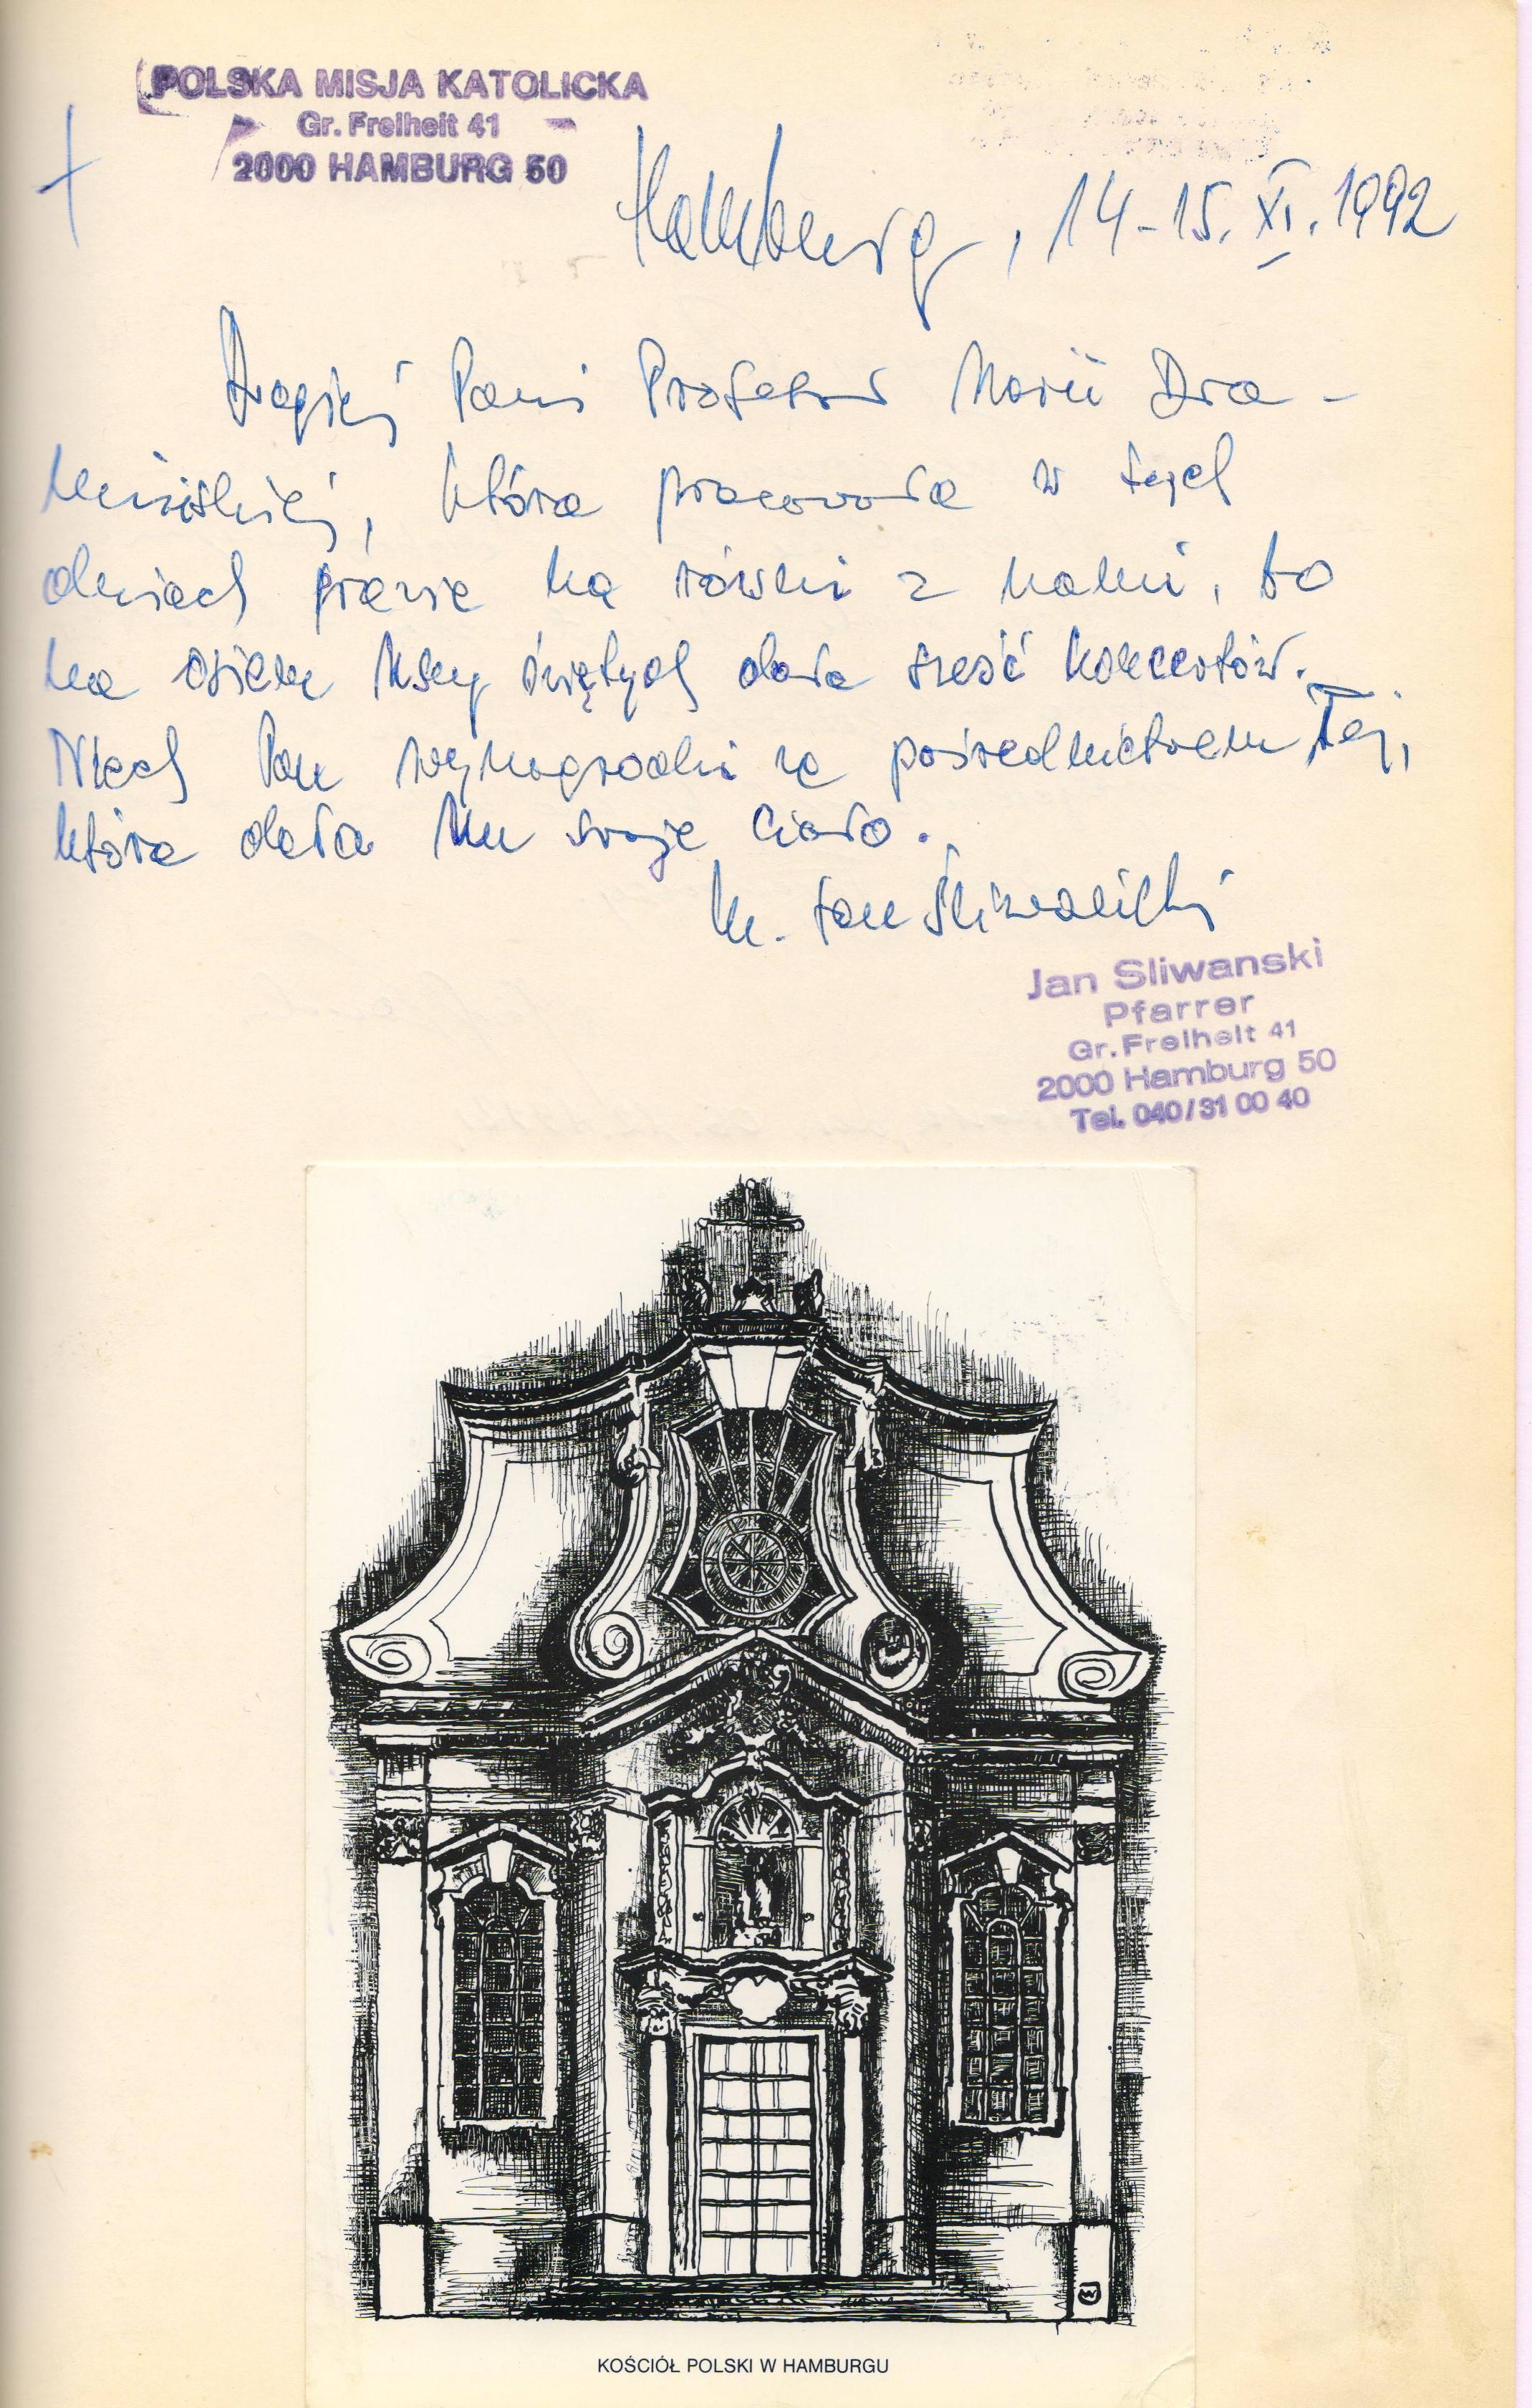 POLSKA MISJA KATOLICKA
Gr. Freiheit 41
2000 HAMBURG 50
Hamburg, 14-15. XI. 1992
Drogiej Pani Profesor Marii Dra-
która pracowała w tych
dniach prawie na równi z nami, bo
na osiem Mszy świętych dała sześć koncertów.
Niech Pan wynagrodzi za pośrednictwem Tej,
która dała Mu swoje Ciało.
ks. Jan Śliwański
Jan Sliwanski
Pfarrer
Gr. Freiheit 41
2000 Hamburg 50
Tel. 040/31 00 40
KOŚCIÓŁ POLSKI W HAMBURGU